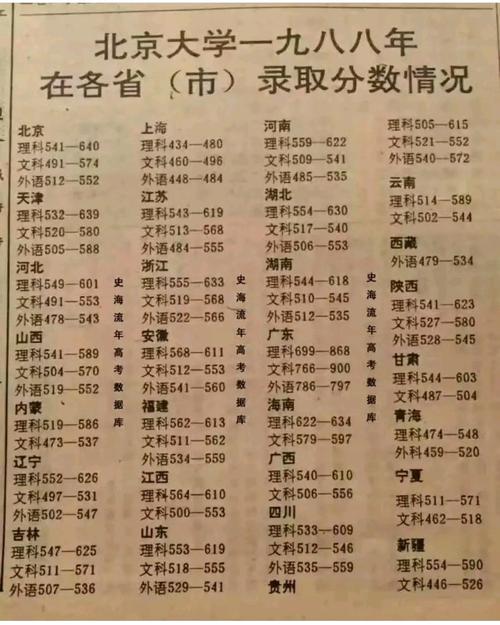 北京大学一九八八年
在各省（市）录取分数情况
北京
理科541—640
文科491—574
外语512—552
天津
理科532—639
文科520—580
外语505—588
河北
理科549—601
文科491—553
外语478—543
山西
理科541—589
文科504—570
外语519—552
内蒙
理科519—586
文科473—537
辽宁
理科552—626
文科497—531
外语502—547
吉林
理科547—625
文科511—571
外语507—536
上海
理科434—480
文科460—496
外语448—484
江苏
理科543—619
文科513—568
外语484—555
浙江
理科555—633
文科519—568
外语522—566
安徽
理科568—611
文科512—553
外语541—560
福建
理科562—613
文科511—562
外语534—559
江西
理科564—610
文科500—553
山东
理科553—619
文科518—555
外语529—541
河南
理科559—622
文科509—541
外语485—535
湖北
理科554—630
文科517—540
外语506—553
湖南
理科544—618
文科510—545
外语512—535
广东
理科699—868
文科766—900
外语786—797
海南
理科622—634
文科579—597
广西
理科540—610
文科506—556
四川
理科533—609
文科512—546
外语535—559
贵州
理科505—615
文科521—552
外语540—572
云南
理科514—589
文科502—544
西藏
外语479—534
陕西
理科541—623
文科527—580
外语528—545
甘肃
理科544—603
文科487—504
青海
理科474—548
外科459—520
宁夏
理科511—571
文科462—518
新疆
理科554—590
文科446—526
史海流年高考数据库
史海流年高考数据库
史海流年高考数据库